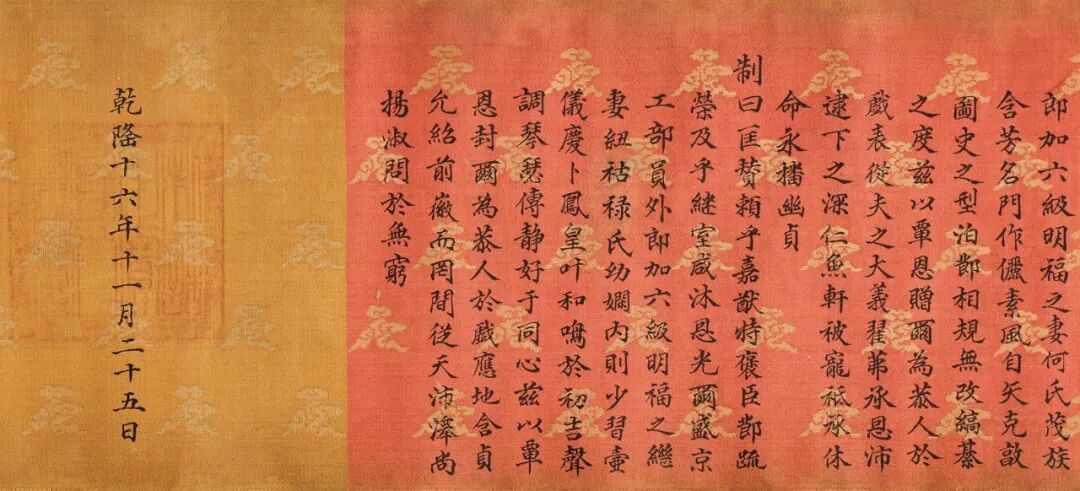 郎加六級明福之妻何氏茂族
含芳名門作儷素風自矢克敦
圖史之型泊節相規無改縞綦
之度茲以覃恩贈爾為恭人於
戲表從夫之大義翟茀承恩沛
逮下之深仁魚軒被寵祗承休
命永播幽貞
制曰匡贊賴乎嘉猷特褒臣節疏
榮及乎繼室咸沐恩光爾盛京
工部員外郎加六級明福之繼
妻紐祜祿氏幼嫻內則少習壼
儀慶卜鳳皇叶和鳴於初吉聲
調琴瑟傳静好于同心茲以覃
恩封爾為恭人於戲應地含貞
允紹前徽而罔間從天沛澤尚
揚淑問於無窮
乾隆十六年十一月二十五日